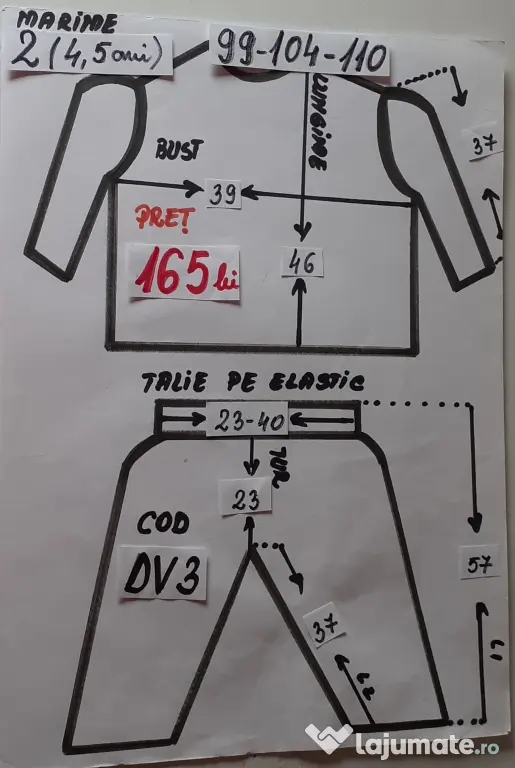 MARIME
2 (4,5 ani)
99-104-110
LUNGIME
37
BUST
39
PREȚ
165 lei
46
TALIE PE ELASTIC
23-40
TUR
23
COD
DV3
57
37
L1
L2
lajumate.ro